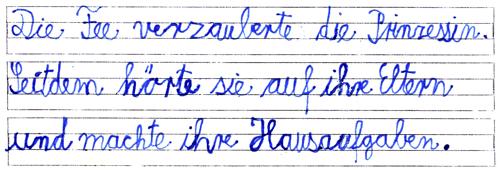 Die Fee verzauberte die Prinzessin.
Seitdem hörte sie auf ihre Eltern
und machte ihre Hausaufgaben.